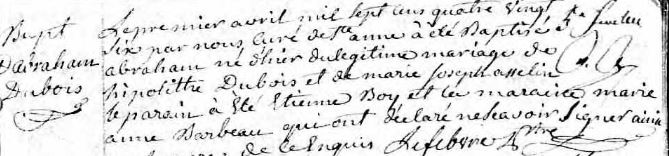 Bapt
d'abraham
Dubois
Le premier avril mil sept cens quatre vingt
six par nous Curé de Ste anne à été Baptisé
abraham né d'hier du legitime mariage de
hipolitte Dubois et de marie Joseph asselin
le parain à Eté Etienne Boy et la maraine marie
anne Barbeau qui ont déclaré ne scavoir Signer ainsi
de ce Enquis Lefebvre ptre